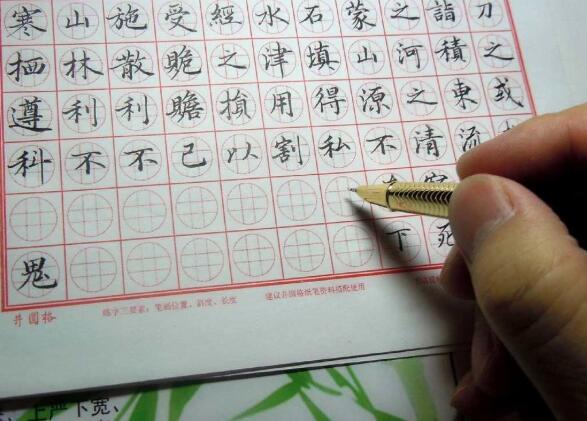 寒山施受經水石蒙之詣刀
栖林散貺之津填山河積之
遵利利贍損用得源之東或
科不不己以割私不清流
鬼下死
井圆格 练字三要素：笔画位置、斜度、长度 建议井圆格纸笔资料搭配使用
上严下宽、